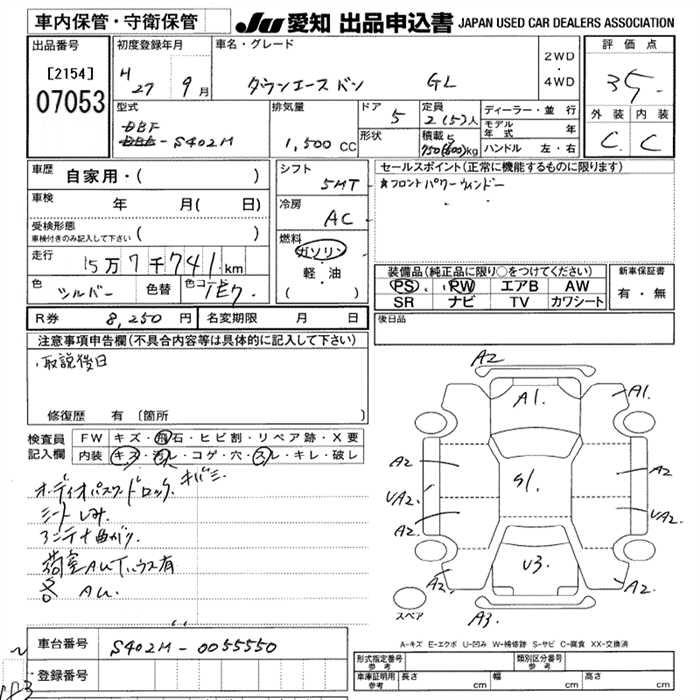 車内保管・守衛保管
JU 愛知 出品申込書 JAPAN USED CAR DEALERS ASSOCIATION
出品番号
[2154]
07053
初度登録年月
H 27 9月
車名・グレード
タウンエースバン GL
2WD
・
4WD
評価点
3.5
外装 内装
C C
型式
DBF
-S402M
排気量
1,500 CC
ドア 5
形状
定員
2(5)人
積載
750(600)kg
ディーラー・並行
モデル年式 年
ハンドル 左・右
車歴 自家用・( )
車検 年 月( 日)
受検形態
車検付きのみ記入して下さい ( )
走行 15万7千741km
色 シルバー 色替 色コード 1E7
シフト
5MT
冷房
AC
燃料
ガソリン
・軽・油
( )
セールスポイント(正常に機能するものに限ります)
★フロントパワーウィンドー
装備品(純正品に限り○をつけてください)
PS PW エアB AW
SR ナビ TV カワシート
新車保証書
有・無
後日品
R券 8,250円 名変期限 月 日
注意事項申告欄(不具合内容等は具体的に記入して下さい)
取説後日
修復歴 有 〔箇所
検査員記入欄
FW キズ・飛石・ヒビ割・リペア跡・X要
内装 キズ・汚レ・コゲ・穴・スレ・キレ・破レ
オーディオパスワードロック.
キバミ
シートしみ.
アンテナ曲がり.
荷室AUTハウス有
各 AU.
A2
A1.
A1.
A2
A2
UA2
UA2.
A2
A2
S1.
U3.
A2
A2.
A3.
スペア
A-キズ E-エクボ U-凹み W-補修跡 S-サビ C-腐食 XX-交換済
車台番号 S402M-0055550
登録番号
形式指定番号
参考
類別区分番号
参考
車庫証明用
参考
長さ cm 幅 cm 高さ cm